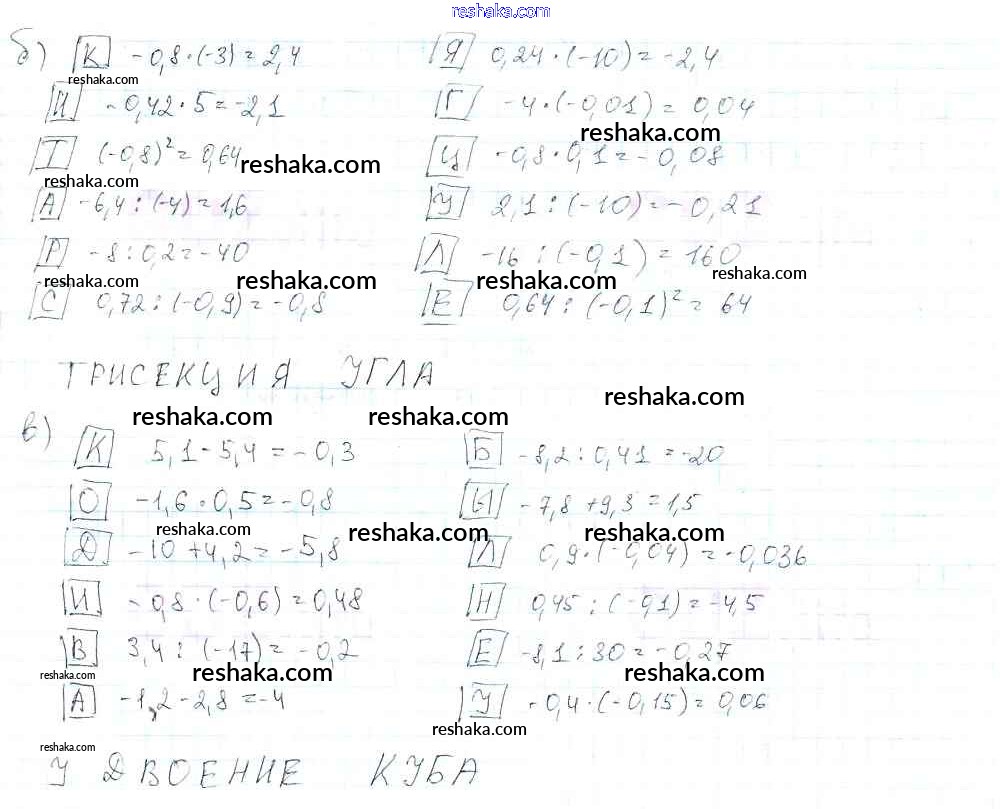 reshaka.com
б) К -0,8·(-3)=2,4 Я 0,24·(-10)=-2,4
reshaka.com
И -0,42·5=-2,1 Г -4·(-0,01)=0,04
reshaka.com reshaka.com
Т (-0,8)²=0,64 Ц -0,8·0,1=-0,08
reshaka.com reshaka.com
А -6,4:(-4)=1,6 У 2,1:(-10)=-0,21
Р -8:0,2=-40 Л -16:(-0,1)=160
reshaka.com reshaka.com reshaka.com
С 0,72:(-0,9)=-0,8 Е 0,64:(-0,1)²=64
ТРИСЕКЦИЯ УГЛА
reshaka.com
reshaka.com reshaka.com
в) К 5,1-5,4=-0,3 Б -8,2:0,41=-20
О -1,6·0,5=-0,8 Ы -7,8+9,3=1,5
reshaka.com reshaka.com reshaka.com
Д -10+4,2=-5,8 Л 0,9·(-0,04)=-0,036
И -0,8·(-0,6)=0,48 Н 0,45:(-0,1)=-4,5
В 3,4:(-17)=-0,2 Е -8,1:30=-0,27
reshaka.com reshaka.com reshaka.com
А -1,2-2,8=-4 У -0,4·(-0,15)=0,06
reshaka.com
reshaka.com
УДВОЕНИЕ КУБА